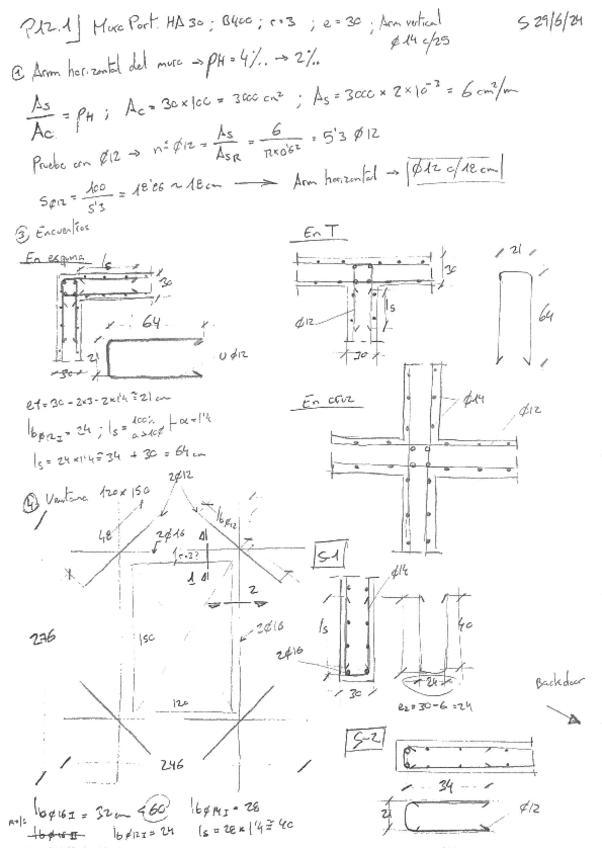 P12.1] Muro Port. HA30 ; B400 ; r=3 ; e=30 ; Arm vertical
ø14 c/25
S 29/6/24
① Arm horizontal del muro → ρH = 4‰ → 2‰
As/Ac = ρH ; Ac = 30×100 = 3000 cm² ; As = 3000 × 2×10⁻³ = 6 cm²/m
Pruebo con ø12 → nº ø12 = As/AsR = 6/π×0'6² = 5'3 ø12
Sø12 = 100/5'3 = 18'86 ~ 18 cm → Arm horizontal → ø12 c/18 cm
③ Encuentros
En esquina
ls
30
64
21
U ø12
30
En T
30
ls
ø12
30
21
64
e1 = 30 - 2×3 - 2×1'4 ≅ 21 cm
lbø12I = 24 ; ls = 100% a>10ø α = 1'4
ls = 24×1'4 ≅ 34 + 30 = 64 cm
En cruz
ø14
ø12
④ Ventana 120×150
2ø12
48
2ø16
lbø12
1
2
276
150
2ø16
120
246
S-1
ø14
ls
2ø16
30
40
24
e2 = 30 - 6 = 24
Backdoor
S-2
34
21
ø12
lbø16I = 32 cm < 60
lbø14I = 28
lbø16II
lbø12I = 24
ls = 28×1'4 ≅ 40